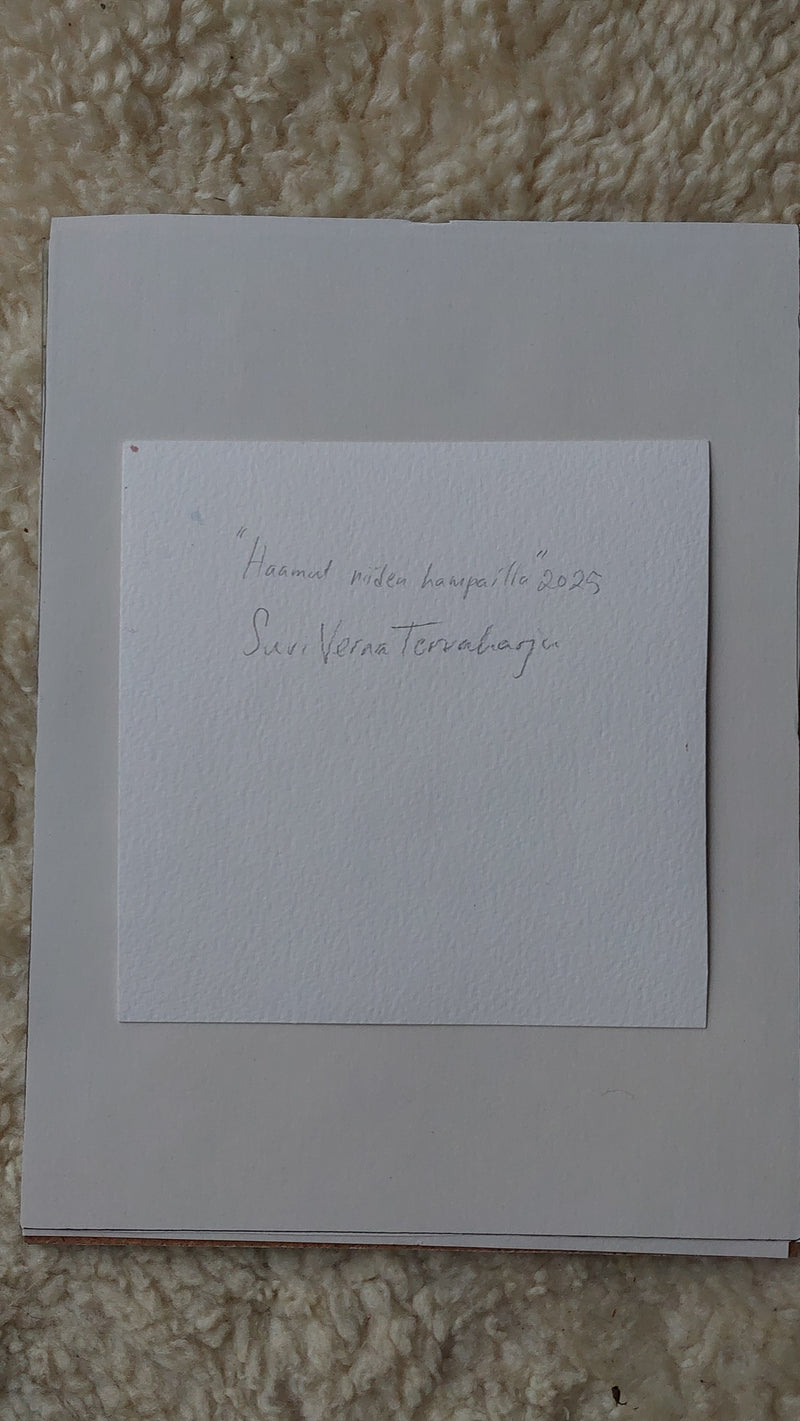 "Haamut niiden hampailla" 2025
Suvi Verna Tervaharju